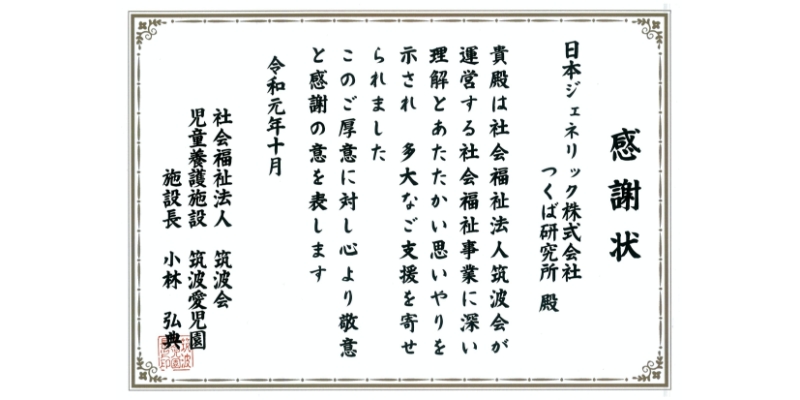 感謝状
日本ジェネリック株式会社
つくば研究所 殿
貴殿は社会福祉法人筑波会が
運営する社会福祉事業に深い
理解とあたたかい思いやりを
示され 多大なご支援を寄せ
られました
このご厚意に対し心より敬意
と感謝の意を表します
令和元年十月
社会福祉法人 筑波会
児童養護施設 筑波愛児園
施設長 小林 弘典